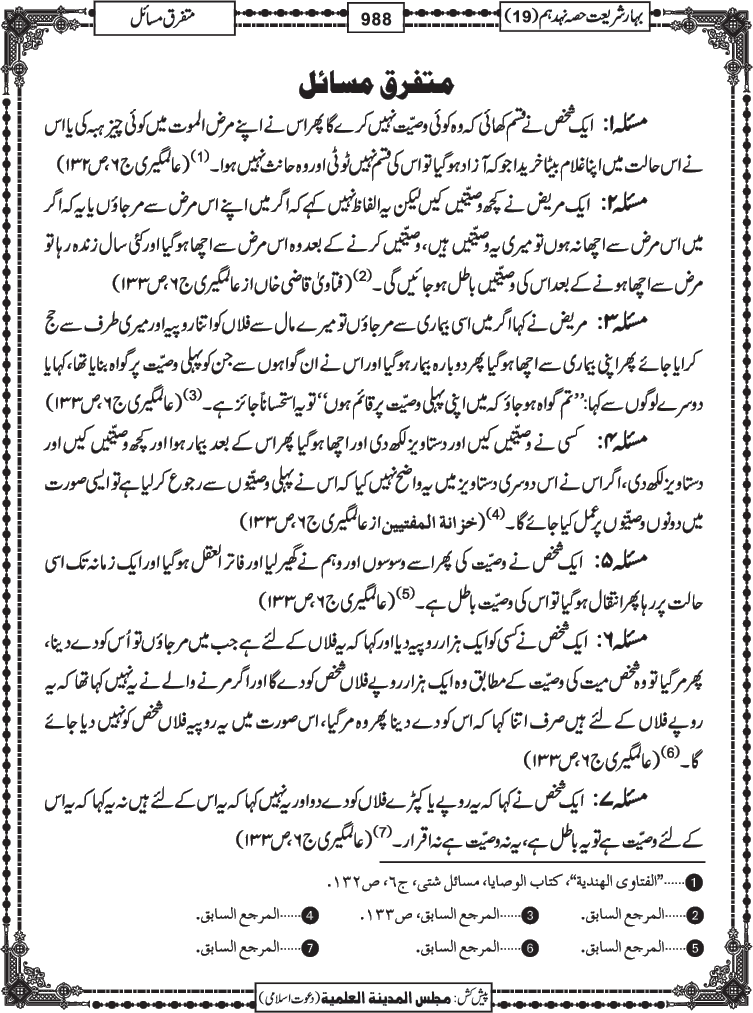 بہار شریعت حصہ نہدہم (19)
988
متفرق مسائل
متفرق مسائل
مسئلہ ۱: ایک شخص نے قسم کھائی کہ وہ کوئی وصیّت نہیں کرے گا پھر اس نے اپنے مرض الموت میں کوئی چیز ہبہ کی یا اس
نے اس حالت میں اپنا غلام بیٹا خریدا جو کہ آزاد ہو گیا تو اس کی قسم نہیں ٹوٹی اور وہ حانث نہیں ہوا۔(1) (عالمگیری ج۶، ص۱۳۲)
مسئلہ ۲: ایک مریض نے کچھ وصیّتیں کیں لیکن یہ الفاظ نہیں کہے کہ اگر میں اپنے اس مرض سے مر جاؤں یا یہ کہ اگر
میں اس مرض سے اچھا نہ ہوں تو میری یہ وصیّتیں ہیں، وصیّتیں کرنے کے بعد وہ اس مرض سے اچھا ہو گیا اور کئی سال زندہ رہا تو
مرض سے اچھا ہونے کے بعد اس کی وصیّتیں باطل ہو جائیں گی۔(2) (فتاویٰ قاضی خاں از عالمگیری ج۶، ص۱۳۳)
مسئلہ ۳: مریض نے کہا اگر میں اسی بیماری سے مر جاؤں تو میرے مال سے فلاں کو اتنا روپیہ اور میری طرف سے حج
کرایا جائے پھر اپنی بیماری سے اچھا ہو گیا پھر دوبارہ بیمار ہو گیا اور اس نے ان گواہوں سے جن کو پہلی وصیّت پر گواہ بنایا تھا، کہا یا
دوسرے لوگوں سے کہا: ’’تم گواہ ہو جاؤ کہ میں اپنی پہلی وصیّت پر قائم ہوں‘‘ تو یہ استحساناً جائز ہے۔(3) (عالمگیری ج۶، ص۱۳۳)
مسئلہ ۴: کسی نے وصیّتیں کیں اور دستاویز لکھ دی اور اچھا ہو گیا پھر اس کے بعد بیمار ہوا اور کچھ وصیّتیں کیں اور
دستاویز لکھ دی، اگر اس نے اس دوسری دستاویز میں یہ واضح نہیں کیا کہ اس نے پہلی وصیّتوں سے رجوع کر لیا ہے تو ایسی صورت
میں دونوں وصیّتوں پر عمل کیا جائے گا۔(4) (خزانة المفتيين از عالمگیری ج۶، ص۱۳۳)
مسئلہ ۵: ایک شخص نے وصیّت کی پھر اسے وسوسوں اور وہم نے گھیر لیا اور فاتر العقل ہو گیا اور ایک زمانہ تک اسی
حالت پر رہا پھر انتقال ہو گیا تو اس کی وصیّت باطل ہے۔(5) (عالمگیری ج۶، ص۱۳۳)
مسئلہ ۶: ایک شخص نے کسی کو ایک ہزار روپیہ دیا اور کہا کہ یہ فلاں کے لئے ہے جب میں مر جاؤں تو اُس کو دے دینا،
پھر مر گیا تو وہ شخص میت کی وصیّت کے مطابق وہ ایک ہزار روپے فلاں شخص کو دے گا اور اگر مرنے والے نے یہ نہیں کہا تھا کہ یہ
روپے فلاں کے لئے ہیں صرف اتنا کہا کہ اس کو دے دینا پھر وہ مر گیا، اس صورت میں یہ روپیہ فلاں شخص کو نہیں دیا جائے
گا۔(6) (عالمگیری ج۶، ص۱۳۳)
مسئلہ ۷: ایک شخص نے کہا کہ یہ روپے یا کپڑے فلاں کو دے دو اور یہ نہیں کہا کہ یہ اس کے لئے ہیں نہ یہ کہا کہ یہ اس
کے لئے وصیّت ہے تو یہ باطل ہے، یہ نہ وصیّت ہے نہ اقرار۔(7) (عالمگیری ج۶، ص۱۳۳)
1......"الفتاوی الھندیة"، کتاب الوصایا، مسائل شتی، ج٦، ص١٣٢.
2......المرجع السابق. 3......المرجع السابق، ص١٣٣. 4......المرجع السابق.
5......المرجع السابق. 6......المرجع السابق. 7......المرجع السابق.
پیش کش: مجلس المدينة العلمية (دعوت اسلامی)